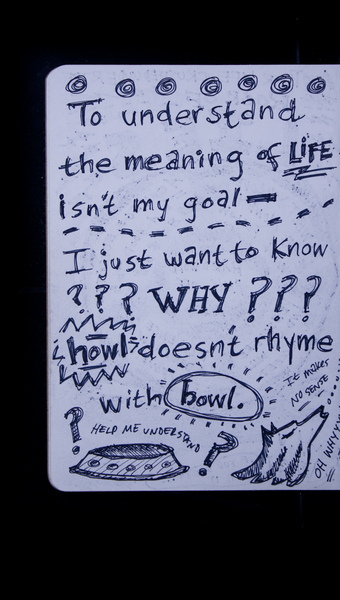 To understand
the meaning of LIFE
isn't my goal —
I just want to know
??? WHY ???
howl doesnt rhyme
with bowl.
It makes
NO SENSE
?
HELP ME UNDERSTAND
?
OH WHYYY